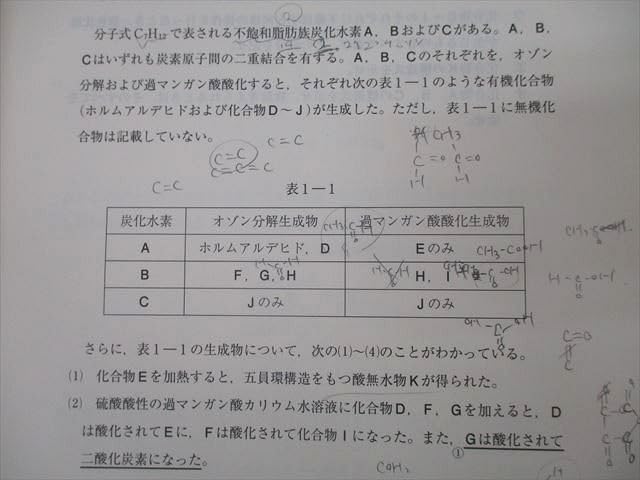 分子式C₇H₁₂で表される不飽和脂肪族炭化水素A, BおよびCがある。A, B,
Cはいずれも炭素原子間の二重結合を有する。A, B, Cのそれぞれを, オゾン
分解および過マンガン酸酸化すると, それぞれ次の表1―1のような有機化合物
(ホルムアルデヒドおよび化合物D～J)が生成した。ただし, 表1―1に無機化
合物は記載していない。
C=C
C=C
C=C
表1―1
炭化水素 オゾン分解生成物 過マンガン酸酸化生成物
A ホルムアルデヒド, D Eのみ
B F, G, H H, I
C Jのみ Jのみ
さらに, 表1―1の生成物について, 次の(1)～(4)のことがわかっている。
(1) 化合物Eを加熱すると, 五員環構造をもつ酸無水物Kが得られた。
(2) 硫酸酸性の過マンガン酸カリウム水溶液に化合物D, F, Gを加えると, D
は酸化されてEに, Fは酸化されて化合物Iになった。また, Gは酸化されて
①
二酸化炭素になった。